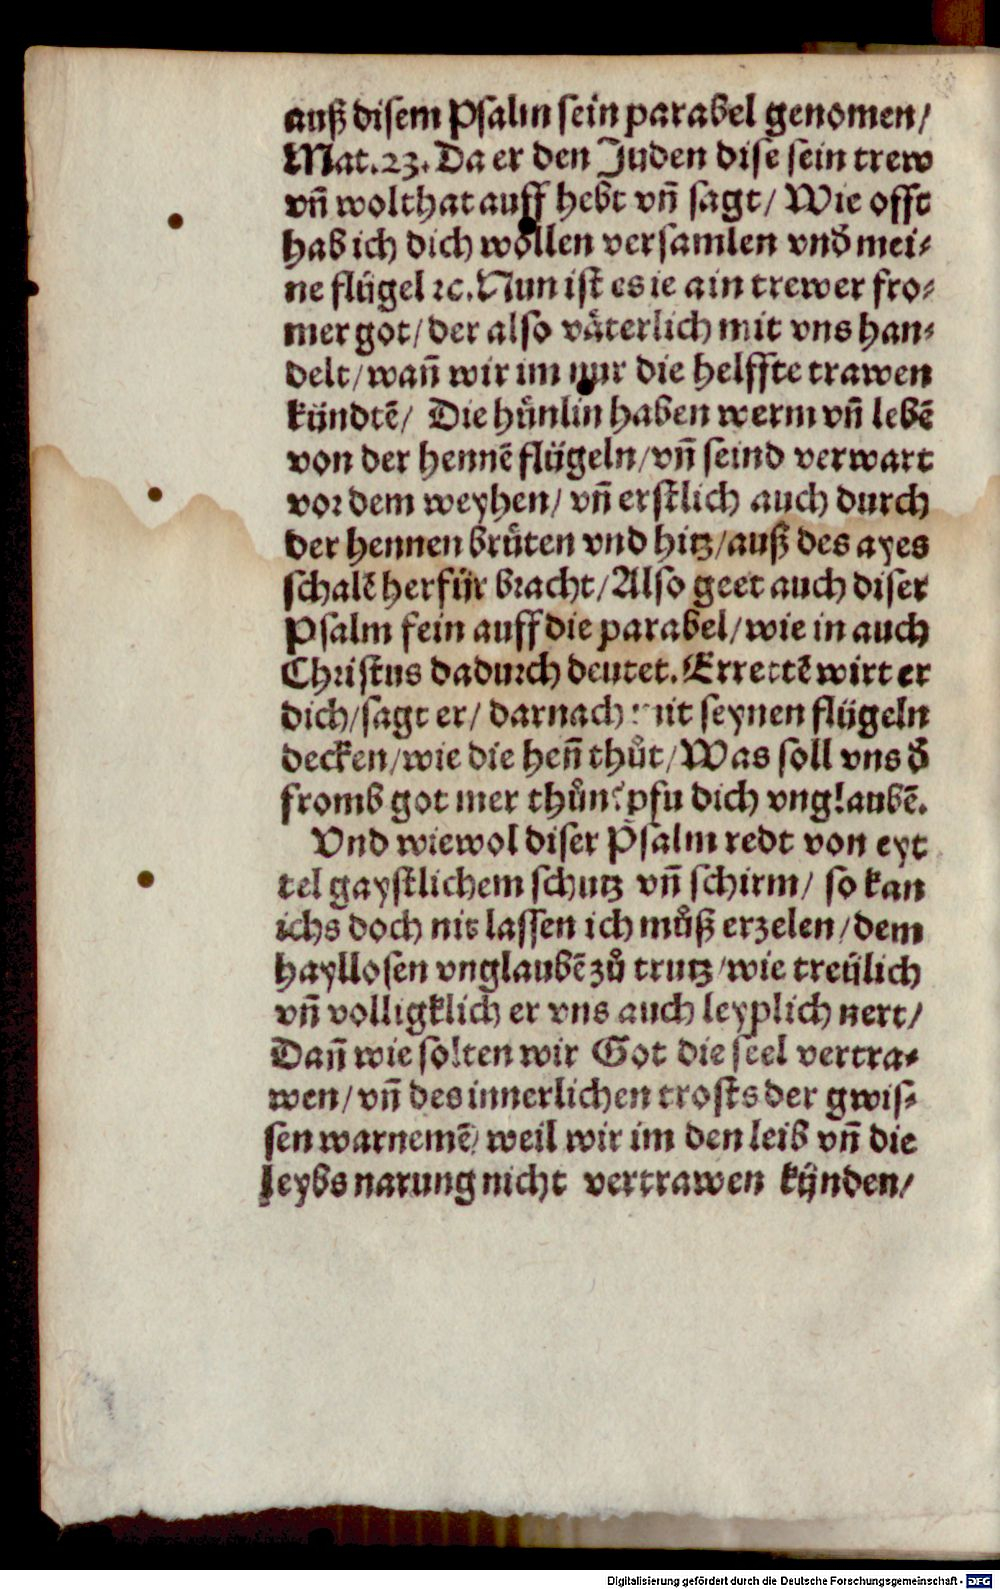 auß disem Psalm sein parabel genomen/
Mat. 23. Da er den Juden dise sein trew
vñ wolthat auff hebt vñ sagt/ Wie offt
hab ich dich wöllen versamlen vnd̕ mei⸗
ne flügel ꝛc. Nun ist es ie ain trewer fro⸗
mer got/ der also våterlich mit vns han⸗
delt/ wañ wir im nur die helffte trawen
kündtē/ Die hůnlin haben werm vñ lebē
von der hennē flügeln/ vñ seind verwart
vor dem weyhen/ vñ erstlich auch durch
der hennen brůten vnd hitz/ auß des ayes
schalē herfür bracht/ Also geet auch diser
Psalm fein auff die parabel/ wie in auch
Christus dadurch deutet. Errettē wirt er
dich/ sagt er/ darnach mit seynen flügeln
decken/ wie die heñ thůt/ Was soll vns d̕
fromb got mer thůn? pfu dich vnglaubē.
Vnd wiewol diser Psalm redt von eyt
tel gaystlichem schutz vñ schirm/ so kan
ichs doch nit lassen ich můß erzelen/ dem
hayllosen vnglaubē zů trutz/ wie treülich
vñ volligklich er vns auch leyplich nert/
Dañ wie solten wir Got die seel vertra⸗
wen/ vñ des innerlichen trosts der gwis⸗
sen warnemē/ weil wir im den leib vñ die
leybs narung nicht vertrawen künden/
Digitalisierung gefördert durch die Deutsche Forschungsgemeinschaft - DFG